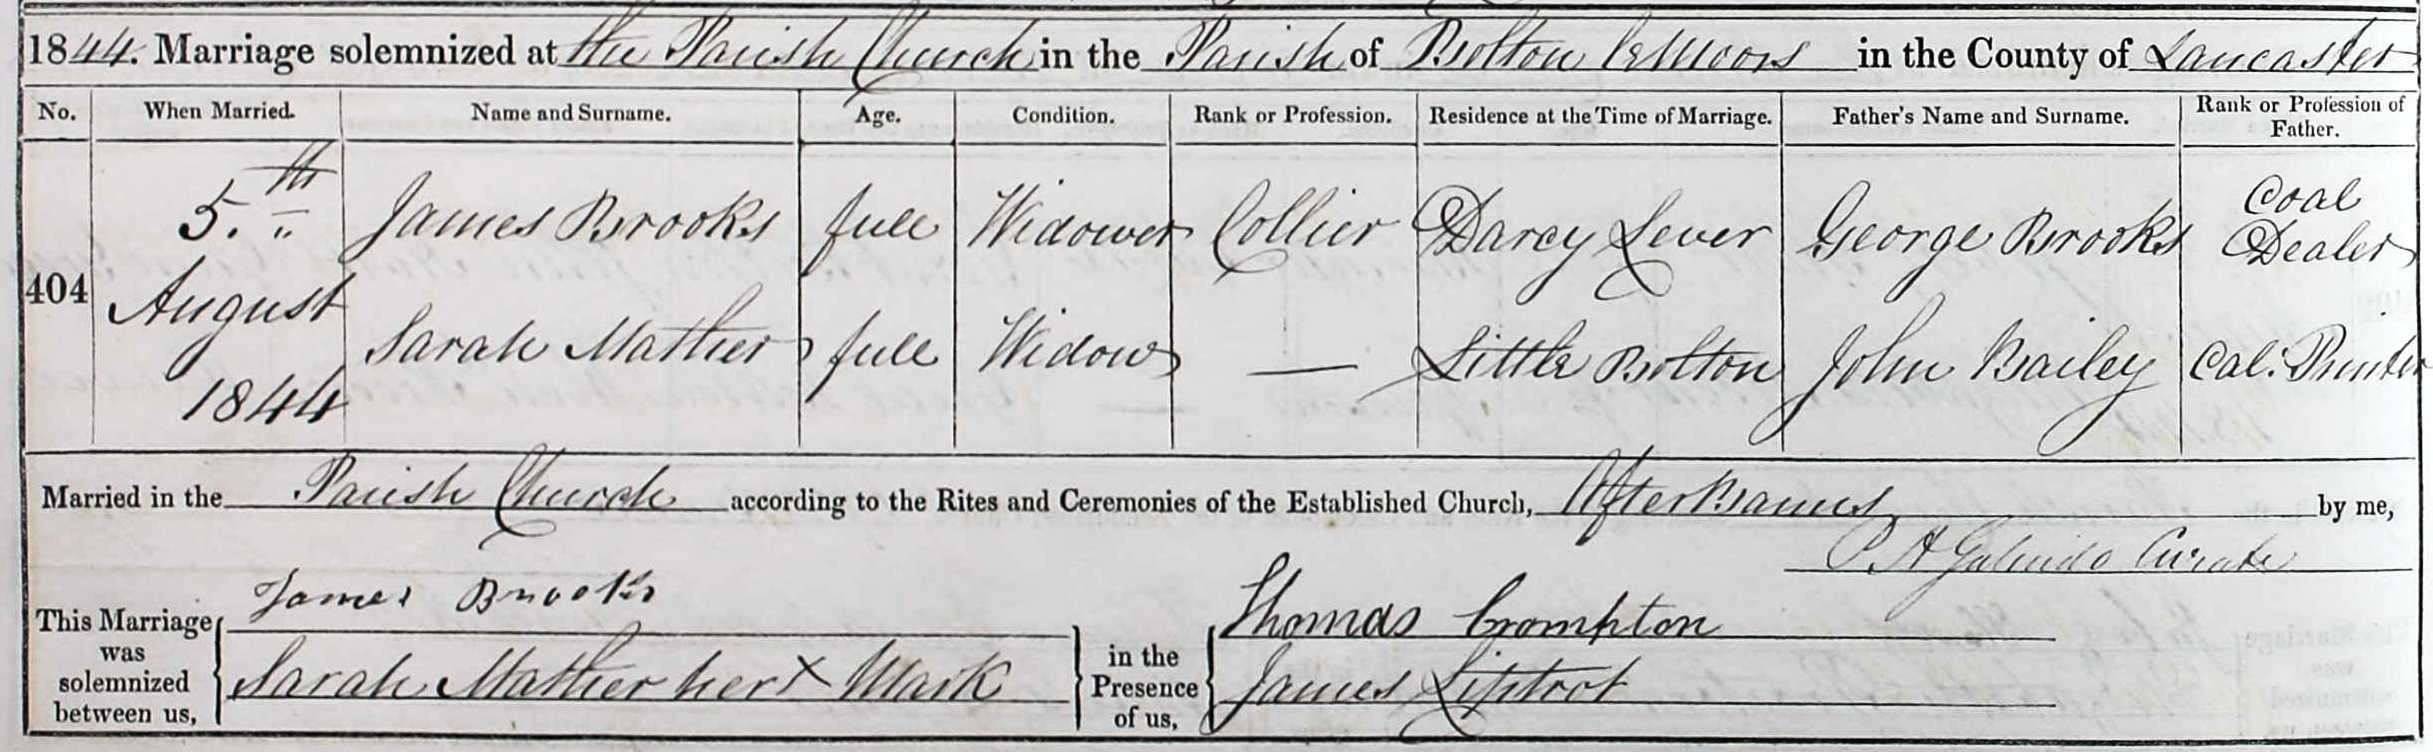 1844. Marriage solemnized at the Parish Church in the Parish of Bolton le Moors in the County of Lancaster
No. When Married. Name and Surname. Age. Condition. Rank or Profession. Residence at the Time of Marriage. Father's Name and Surname. Rank or Profession of Father.
404 5.th August 1844 James Brooks full Widower Collier Darcy Lever George Brooks Coal Dealer
Sarah Mather full Widow — Little Bolton John Bailey Cal. Printer
Married in the Parish Church according to the Rites and Ceremonies of the Established Church, After Banns by me,
P. H Galindo Curate
This Marriage was solemnized between us, James Brooks
Sarah Mather her X Mark
in the Presence of us, Thomas Crompton
James Liptrot